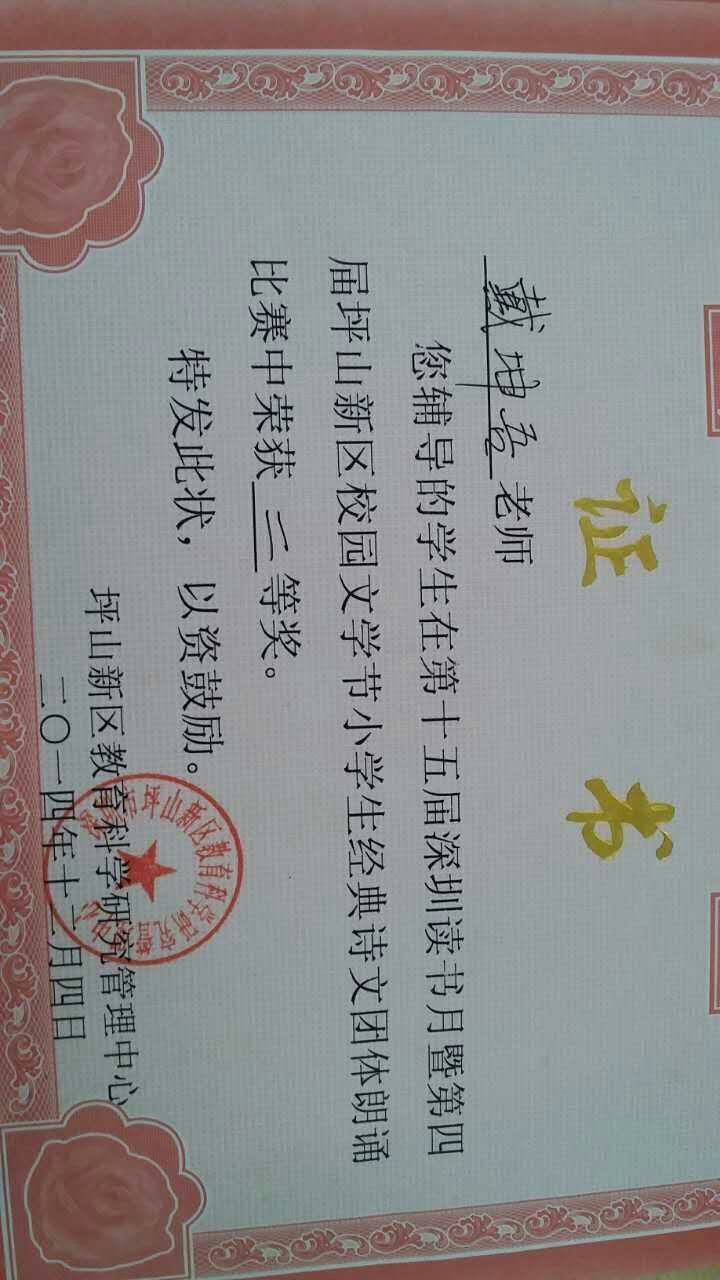 证书
戴坤吾老师
您辅导的学生在第十五届深圳读书月暨第四
届坪山新区校园文学节小学生经典诗文团体朗诵
比赛中荣获二等奖。
特发此状，以资鼓励。
坪山新区教育科学研究管理中心
二〇一四年十二月四日